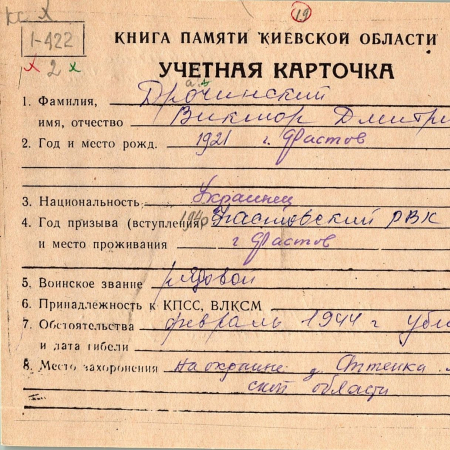 К X
19
1-422
x 2 x
КНИГА ПАМЯТИ КИЕВСКОЙ ОБЛАСТИ
УЧЕТНАЯ КАРТОЧКА
1. Фамилия, Дрочинский
имя, отчество Виктор Дмитри
2. Год и место рожд. 1921 г. Фастов
3. Национальность Украинец
4. Год призыва (вступления) 1940 Фастовский РВК
и место проживания г Фастов
5. Воинское звание рядовой
6. Принадлежность к КПСС, ВЛКСМ
7. Обстоятельства февраль 1944 г уби
и дата гибели
8. Место захоронения на окраине д
ской области